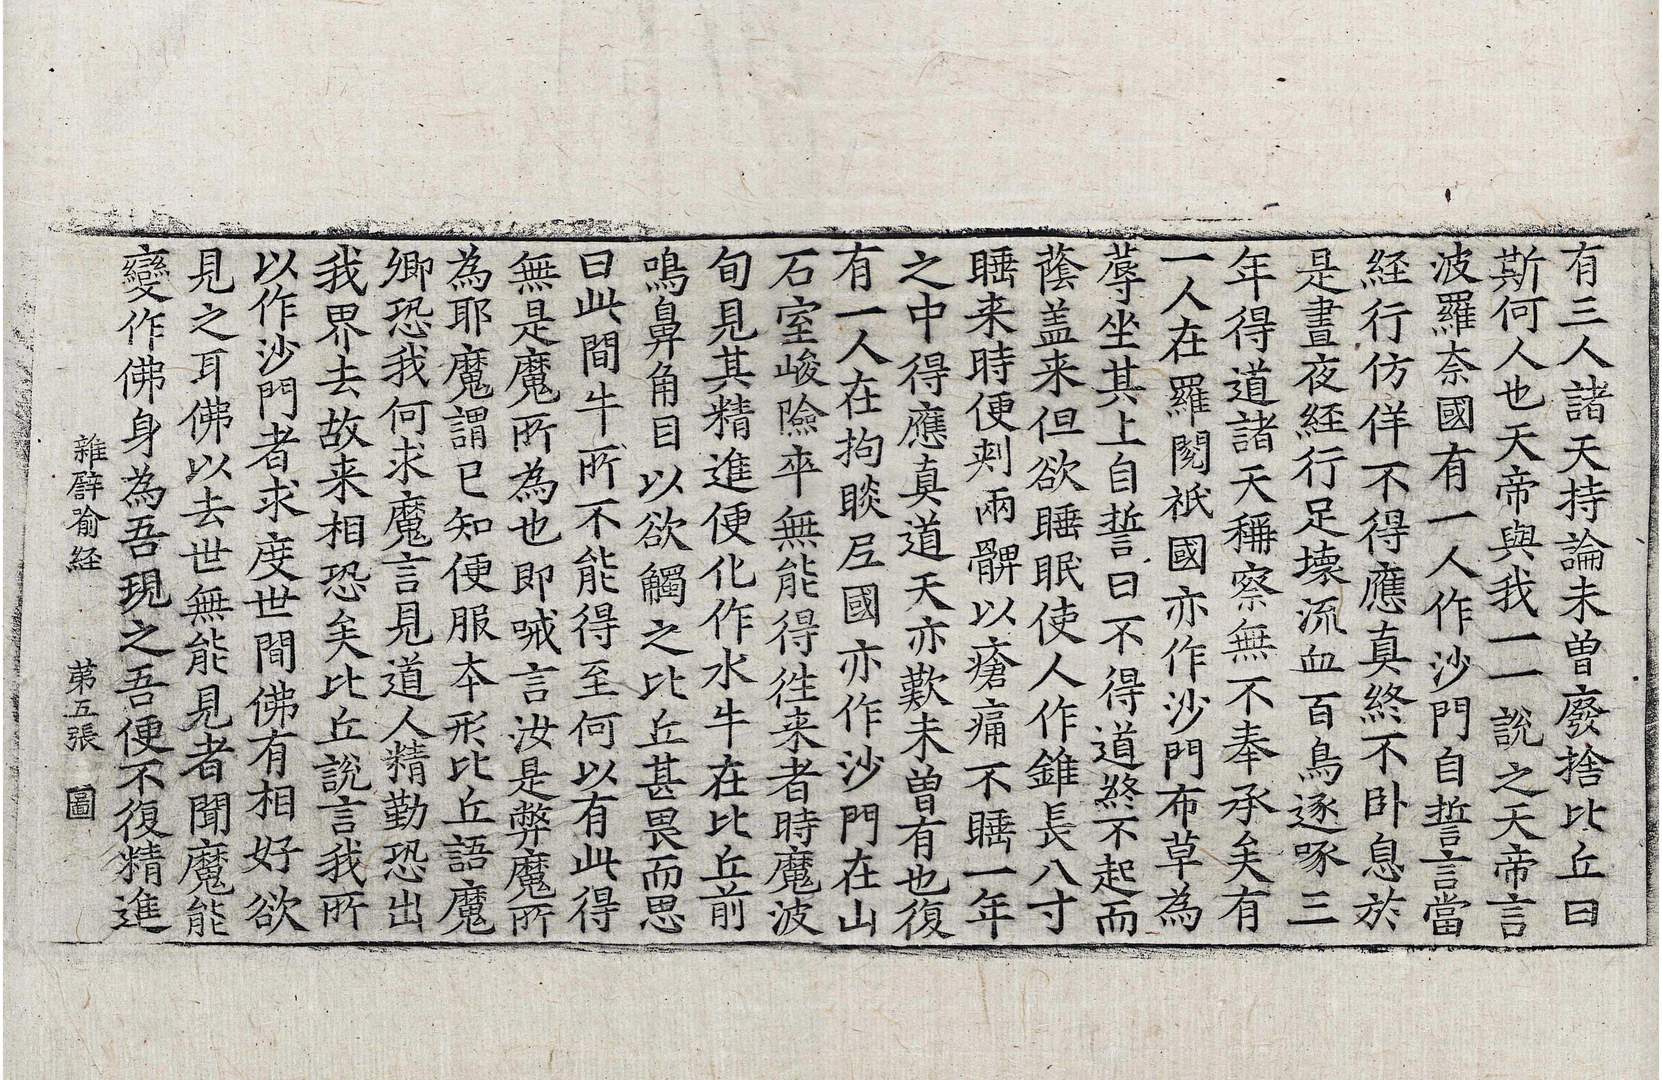 有三人諸天持論未曽廢捨比丘曰
斯何人也天帝與我一一說之天帝言
波羅柰國有一人作沙門自誓言當
経行仿佯不得應真終不卧息於
是晝夜経行足壞流血百鳥逐啄三
年得道諸天稱察無不奉承矣有
一人在羅閱祇國亦作沙門布草為
蓐坐其上自誓曰不得道終不起而
蔭盖来但欲睡眠使人作錐長八寸
睡来時便刾兩髀以瘡痛不睡一年
之中得應真道天亦歎未曽有也復
有一人在拘睒𡰱國亦作沙門在山
石室峻險卒無能得徃来者時魔波
旬見其精進便化作水牛在比丘前
鳴鼻角目以欲觸之比丘甚畏而思
曰此間牛所不能得至何以有此得
無是魔所為也即喊言汝是弊魔所
為耶魔謂已知便服本形比丘語魔
卿恐我何求魔言見道人精勤恐出
我界去故来相恐矣比丘説言我所
以作沙門者求度世間佛有相好欲
見之耳佛以去世無能見者聞魔能
變作佛身為吾現之吾便不復精進
雜譬喻経 第五張 圖